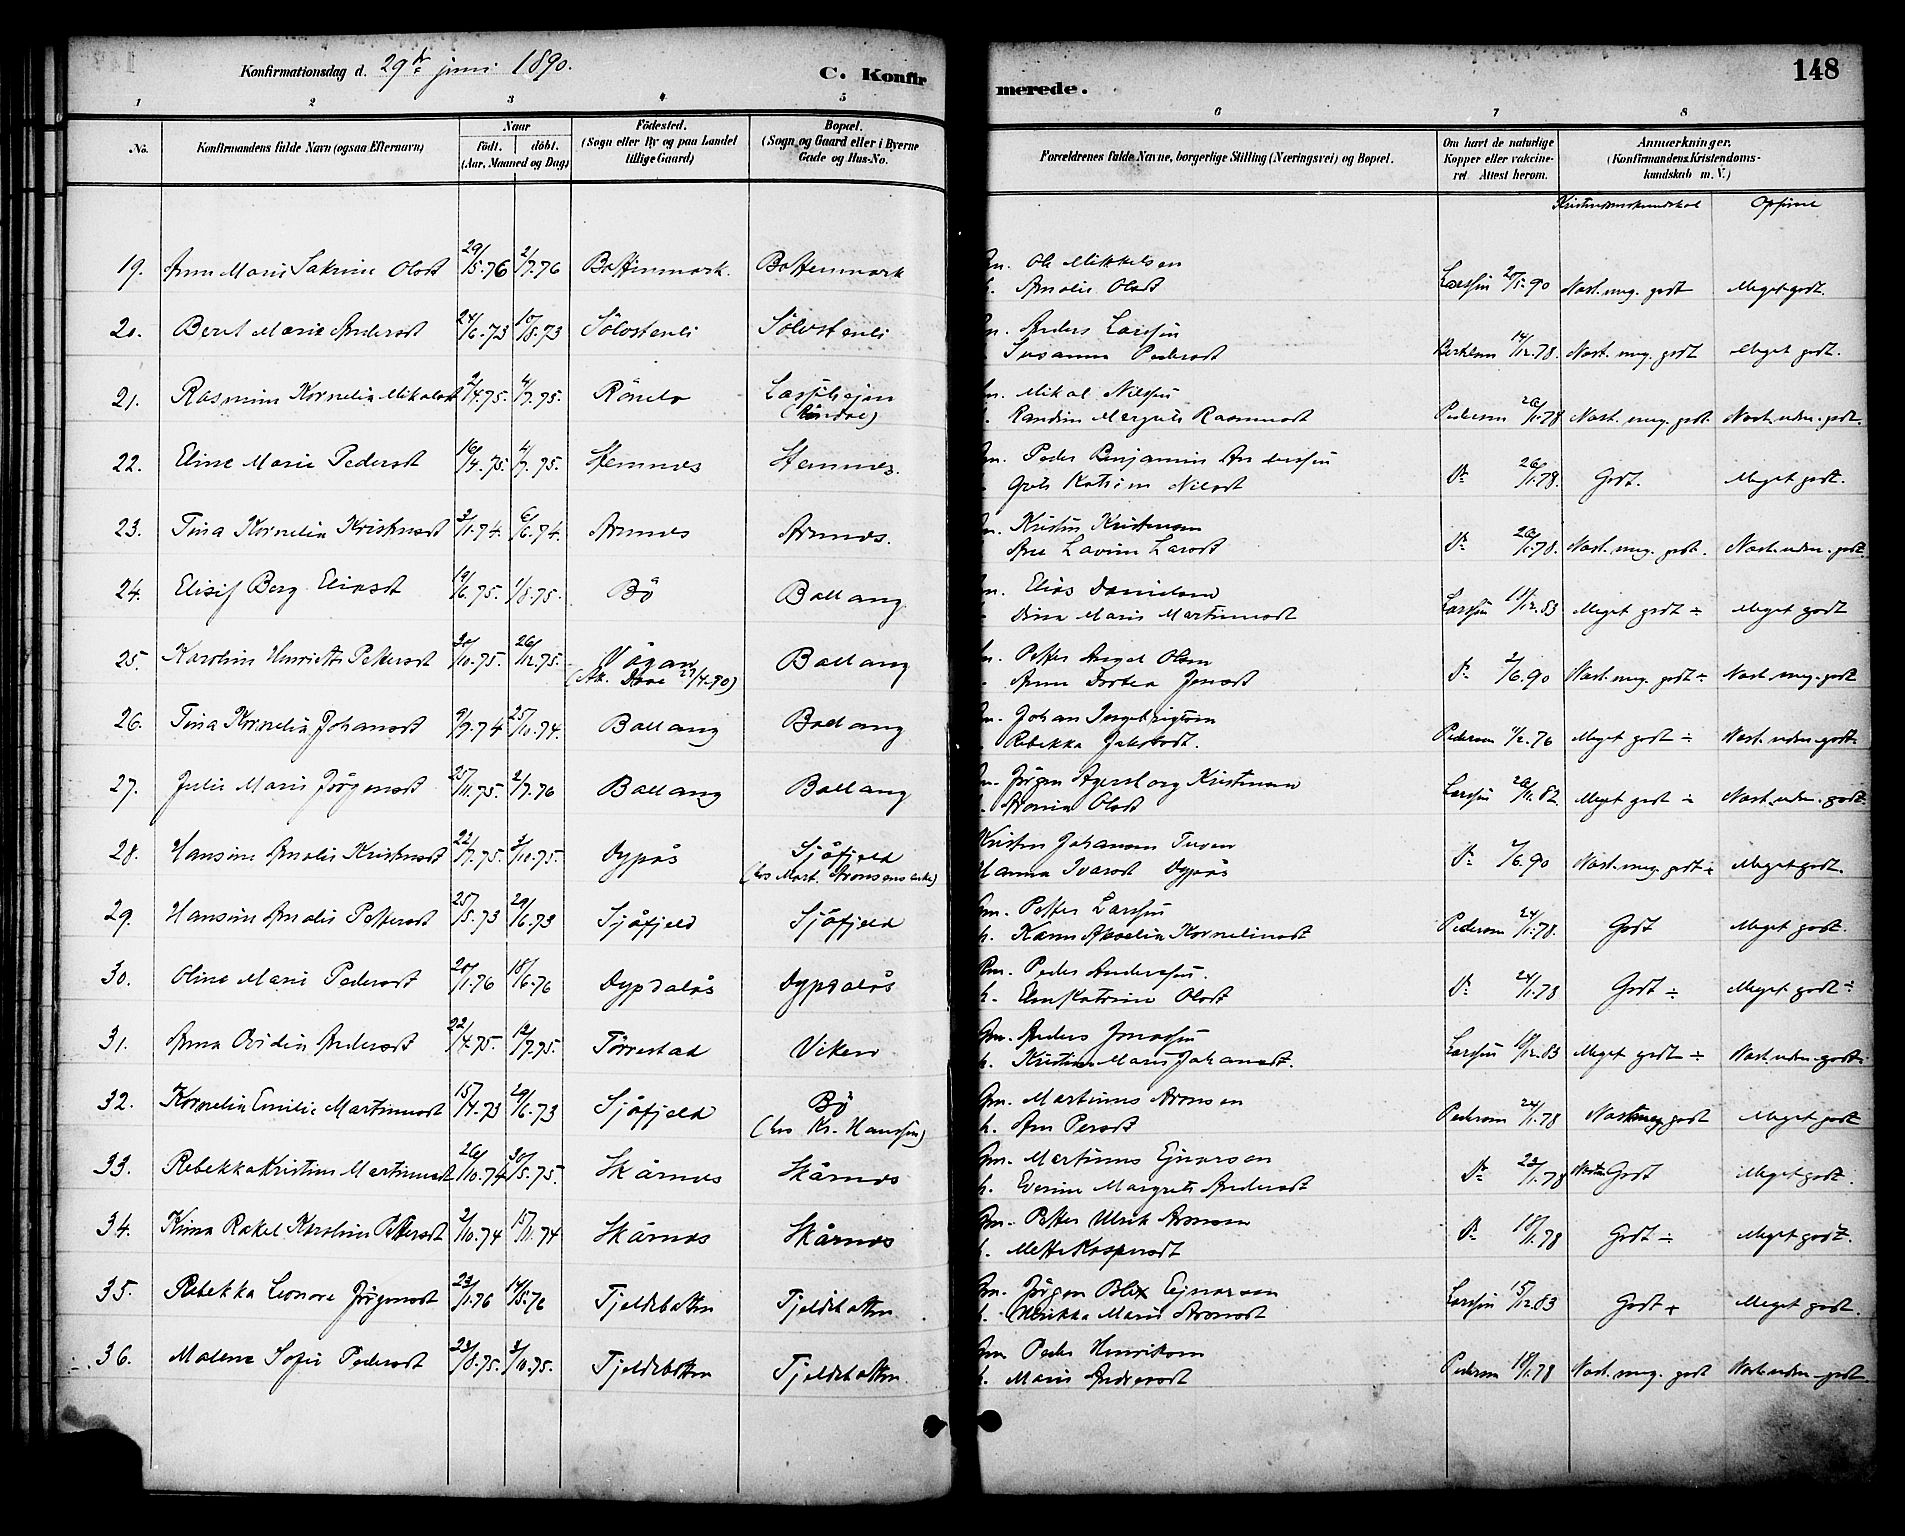 Konfirmationsdag d. 29de juni 1890.
C. Konfirmerede.
148
1 2 3 4 5 6 7 8
No.
Konfirmandens fulde Navn (ogsaa Efternavn)
Naar
födt. döbt.
(Aar, Maaned og Dag)
Födested.
(Sogn eller By og paa Landet
tillige Gaard)
Bopæl.
(Sogn og Gaard eller i Byerne
Gade og Hus-No.
Forældrenes fulde Navne, borgerlige Stilling (Næringsvei) og Bopæl.
Om havt de naturlige
Kopper eller vakcine-
ret. Attest herom.
Anmærkninger.
(Konfirmandens Kristendoms-
kundskab m. V.)
Kristendomskundskab Opförsel
19. Anna Marie Sakrine Olsdt 29/5.76 2/7.76 Bottenmark. Bottenmark Gm. Ole Mikkelsen
h. Amalie Olsdt Larssen 25/5.90 Nast. meg. godt Meget godt.
20. Beret Marie Andersdt 24/6.73 10/8.73 Sölvstenli Sölvstenli Gm. Anders Larssen
Susanna Pedersdt 14/12.78. Nast. meg. godt Meget godt.
21. Rasmine Kornelia Mikalsdt 2/4.75. 4/7.75. Gm. Mikal Nilssen
h. Randine Margrete Rasmusdt Pedersen 26/1.78 Nast. meg. godt Nast. uden. godt.
22. Eline Marie Pedersdt 16/4.75. 4/7.75. Hemnes Hemnes. Gm. Peder Benjamin Anderssen
Katrine Nilsdt Do 26/1.78. Godt. Meget godt.
23. Tina Kornelia Kristensdt 3/1.74. 6/6.74. Arnnes Arnnes. Gm. Kristen Kristensen
Ane Lavina Larsdt Do 26/1.78. Nast. meg. godt. Nast. uden. godt.
24. Elisif Berg Eliasdt 19/6.75. 1/8.75. Bö Ballang Gm. Elias Danielsen
Dina Marie Martinusdt Larssen 11/12.83 Meget godt ÷ Meget godt
25. Karoline Henriette Pettersdt 30/10.75. 26/12.75. Vågan Ballang Gm. Petter Angel Olsen
Anna Dortea Jensdt Do 2/6.90 Nast. meg. godt ÷ Nast. meg. godt
26. Tina Kornelia Johansdt 9/9.74 25/10.74. Ballang Ballang Gm. Johan Ingebrigtsen
Rebekka Jakobsdt. Pedersen 11/2.76 Meget godt ÷ Nast. uden. godt.
27. Julie Marie Jörgensdt 25/11.75. 2/7.76 Ballang Ballang Gm. Jörgen Agersborg Kristensen
Olsdt Larssen 20/11.82 Meget godt ÷ Nast. uden. godt.
28. Hansine Amalie Kristensdt 22/7.75. 3/10.75. Dypås Sjåfjeld
(hos Mart. Aronsens enke) Kristen Johannes Iversen
Hanna Ivarsdt Dypås Do 7/6.90 Nast. meg. godt ÷ Meget godt.
29. Hansine Amalie Pettersdt 25/5.73 29/6.73 Sjåfjeld Sjåfjeld Gm. Petter Larssen
h. Karen Akselia Kornelinsdt Pedersen 24/1.78. Godt Meget godt.
30. Oline Marie Pedersdt 20/1.76 18/6.76 Dypdalås Dypdalås Gm. Peder Anderssen.
h. Elen Katrine Olsdt Do 24/1.78 Godt ÷ Meget godt ÷
31. Anna Ovidia Andersdt 22/4.75. 12/7.75. Törrestad Viken Gm. Anders Jonassen
h. Kristine Marie Johansdt. Larssen 10/12.83 Meget godt ÷ Nast. uden. godt.
32. Kornelia Emilie Martinusdt 15/4.73 29/6.73 Sjåfjeld Bö
(hos Kr. Hanssen) Gm. Martinus Aronsen
h. Ane Persdt Pedersen 24/1.78 Nast. meg. godt Meget godt
33. Rebekka Kristine Martinusdt 26/10.74 30/5.75. Skårnes Skårnes Gm. Martinus Ejnarsen
h. Everine Margrete Andersdt Do 23/1.78 Godt Meget godt.
34. Rakel Karoline Pettersdt 2/10.74 15/11.74 Skårnes Skårnes Gm. Petter Ulrik Aronsen
h. Mette Kaspersdt Do 18/1.78 Godt ÷ Meget godt.
35. Rebekka Leonore Jörgensdt 23/1.76 14/5.76 Tjeldebotten Tjeldebotten Gm. Jörgen Blix Ejnarsen
h. Ulrikka Marie Aronsdt Larssen 15/12.83 Godt + Meget godt.
36. Malene Sofie Pedersdt 23/8.75. 3/10.75. Tjeldebotten Tjeldebotten. Gm. Peder Henriksen
h. Marie Andersdt Pedersen 18/1.78 Nast. meg. godt Nast. uden. godt